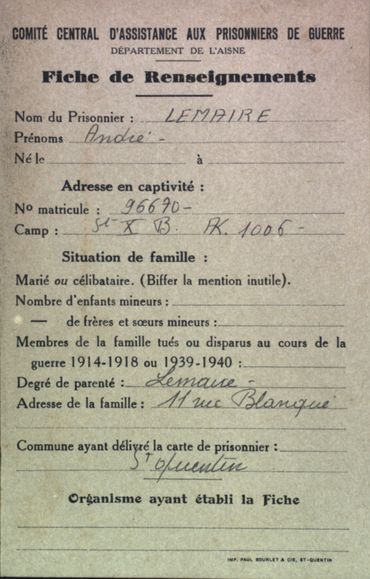 COMITÉ CENTRAL D'ASSISTANCE AUX PRISONNIERS DE GUERRE
DÉPARTEMENT DE L'AISNE
Fiche de Renseignements
Nom du Prisonnier : LEMAIRE
Prénoms André -
Né le à
Adresse en captivité :
No matricule : 96690 -
Camp : St X B. AK. 1006 -
Situation de famille :
Marié ou célibataire. (Biffer la mention inutile).
Nombre d'enfants mineurs :
— de frères et sœurs mineurs :
Membres de la famille tués ou disparus au cours de la
guerre 1914-1918 ou 1939-1940 :
Degré de parenté : Lemaire -
Adresse de la famille : 11 rue Blanque
Commune ayant délivré la carte de prisonnier :
St Quentin
Organisme ayant établi la Fiche
IMP. PAUL BOURLET & CIE, ST-QUENTIN